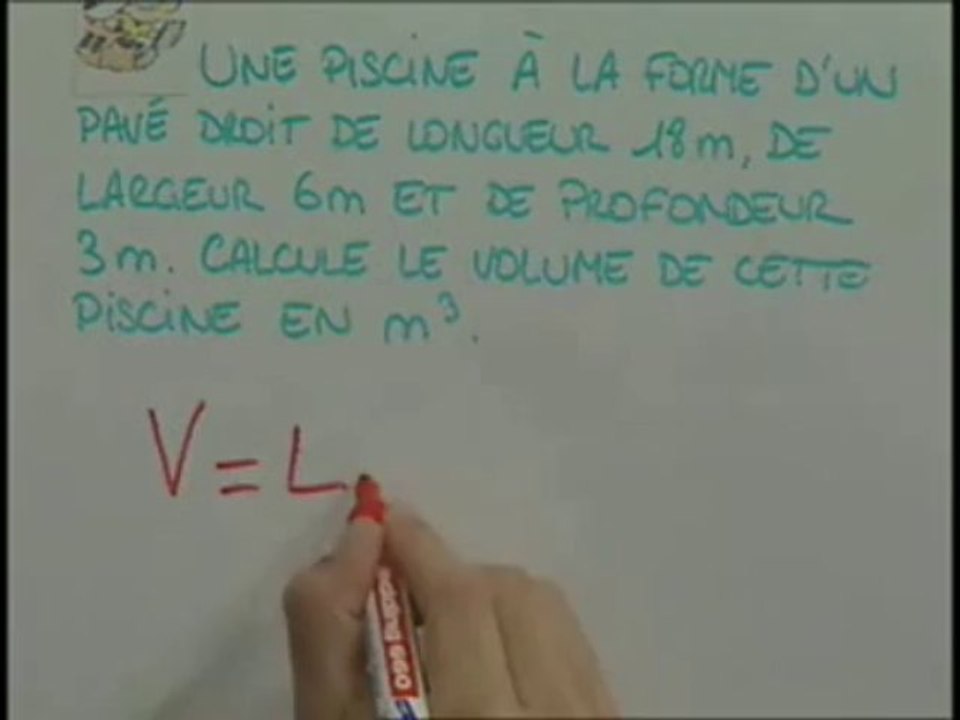 UNE PISCINE À LA FORME D'UN
PAVÉ DROIT DE LONGUEUR 18m, DE
LARGEUR 6m ET DE PROFONDEUR
3m. CALCULE LE VOLUME DE CETTE
PISCINE EN m³.
V = L
edding 660